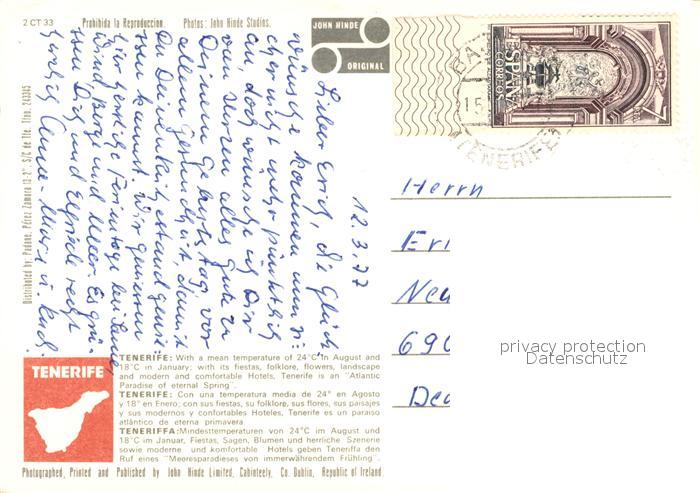 2 CT 33 Prohibida la Reproduccion. Photos: John Hinde Studios.
JOHN HINDE
ORIGINAL
Distributed by: Padone, Pérez Zamora 13-2°. S/C de Tfe. Tfno. 243345
12.3.77
Lieber Erich, die Glück-
wünsche kommen nun si-
cher nicht mehr pünktlich
an doch wünsche ich Dir
von Herzen alles Gute zu
Deinem Geburtstag, vor
allem Gesundheit, damit
Du Deinen Ruhestand genie-
ssen kannst. Wir geniessen
hier herrliche Ferientage bei Sonne,
Wind, Berge und Meer. Es grü-
ssen Dich und Elfriede recht
herzlich Anne-Marie u.
ESPAÑA
CORREOS
7
15
TENERIFE
Herrn
Eri
Neu
690
Deu
privacy protection
Datenschutz
TENERIFE
TENERIFE: With a mean temperature of 24°C in August and
18°C in January; with its fiestas, folklore, flowers, landscape
and modern and comfortable Hotels, Tenerife is an "Atlantic
Paradise of eternal Spring".
TENERIFE: Con una temperatura media de 24° en Agosto
y 18° en Enero; con sus fiestas, su folklore, sus flores, sus paisajes
y sus modernos y confortables Hoteles, Tenerife es un paraiso
atlántico de eterna primavera
TENERIFFA: Mindesttemperaturen von 24°C im August und
18°C im Januar, Fiestas, Sagen, Blumen und herrliche Szenerie
sowie moderne und komfortable Hotels geben Teneriffa den
Ruf eines "Meeresparadieses von immerwährendem Frühling".
Photographed, Printed and Published by John Hinde Limited, Cabinteely, Co. Dublin, Republic of Ireland